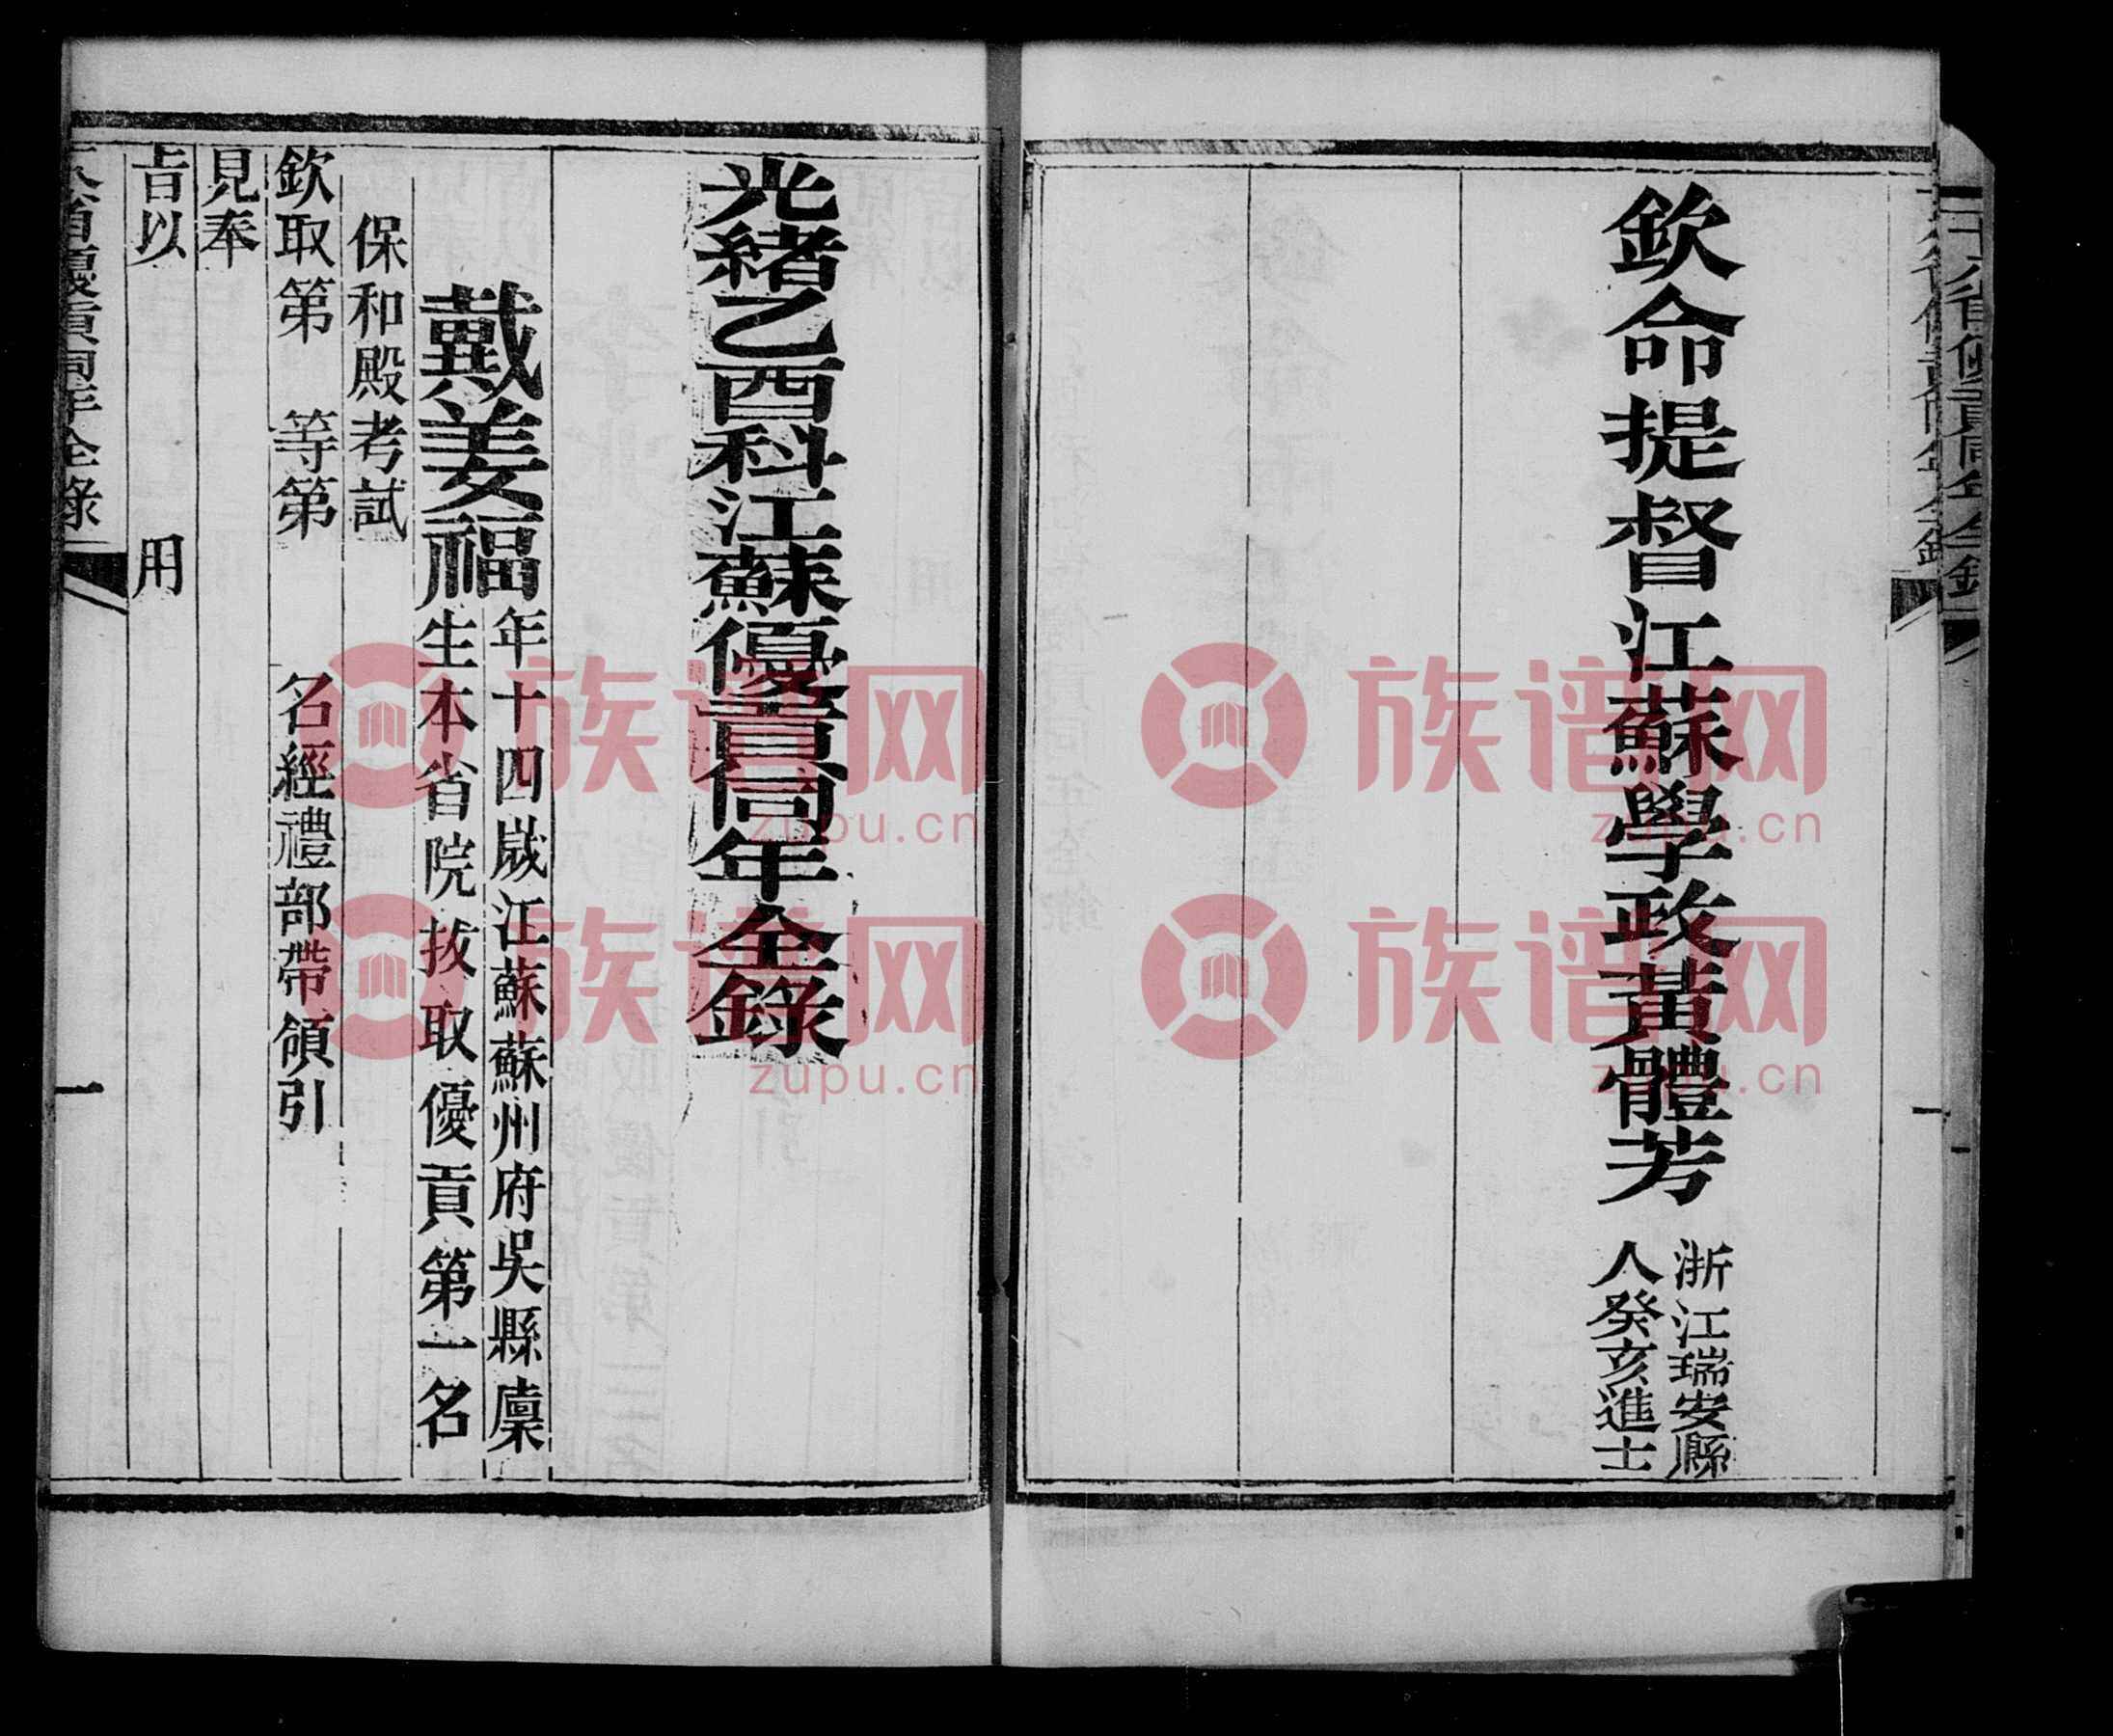 欽命提督江蘇學政黃體芳
浙江瑞安縣
人癸亥進士
光緒乙酉科江蘇優貢同年全錄
戴姜福
年十四歲江蘇蘇州府吳縣廩
生本省院拔取優貢第一名
保和殿考試
欽取第 等第 名經禮部帶領引
見奉
旨以 用
省優貢同年全錄
一
族谱网
zupu.cn
族谱网
zupu.cn
族谱网
zupu.cn
族谱网
zupu.cn